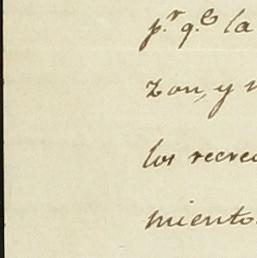 p.r q.e la
zon, y
los recre
miento